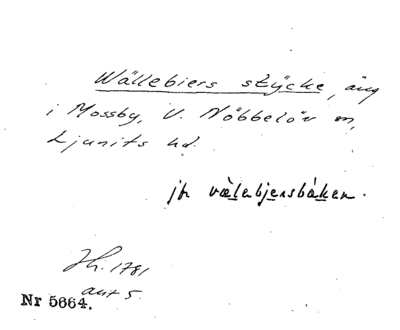 Wällebiers stÿcke, äng
i Mossby, V. Nöbbelöv sn,
Ljunits hd.
jfr vàlabjersbàken.
Jh. 1781
akt 5.
Nr 5664.